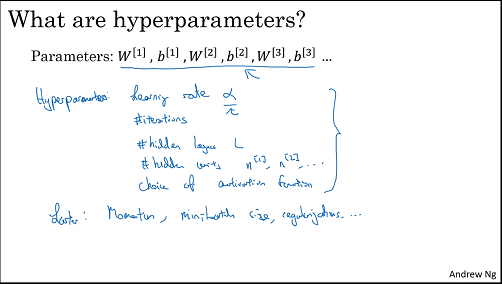 What are hyperparameters?
Parameters: W[1], b[1], W[2], b[2], W[3], b[3] ...
Hyperparameters: learning rate α
#iterations
#hidden layers L
#hidden units n[1], n[2], ...
choice of activation function
Later: Momentum, minibatch size, regularizations...
Andrew Ng